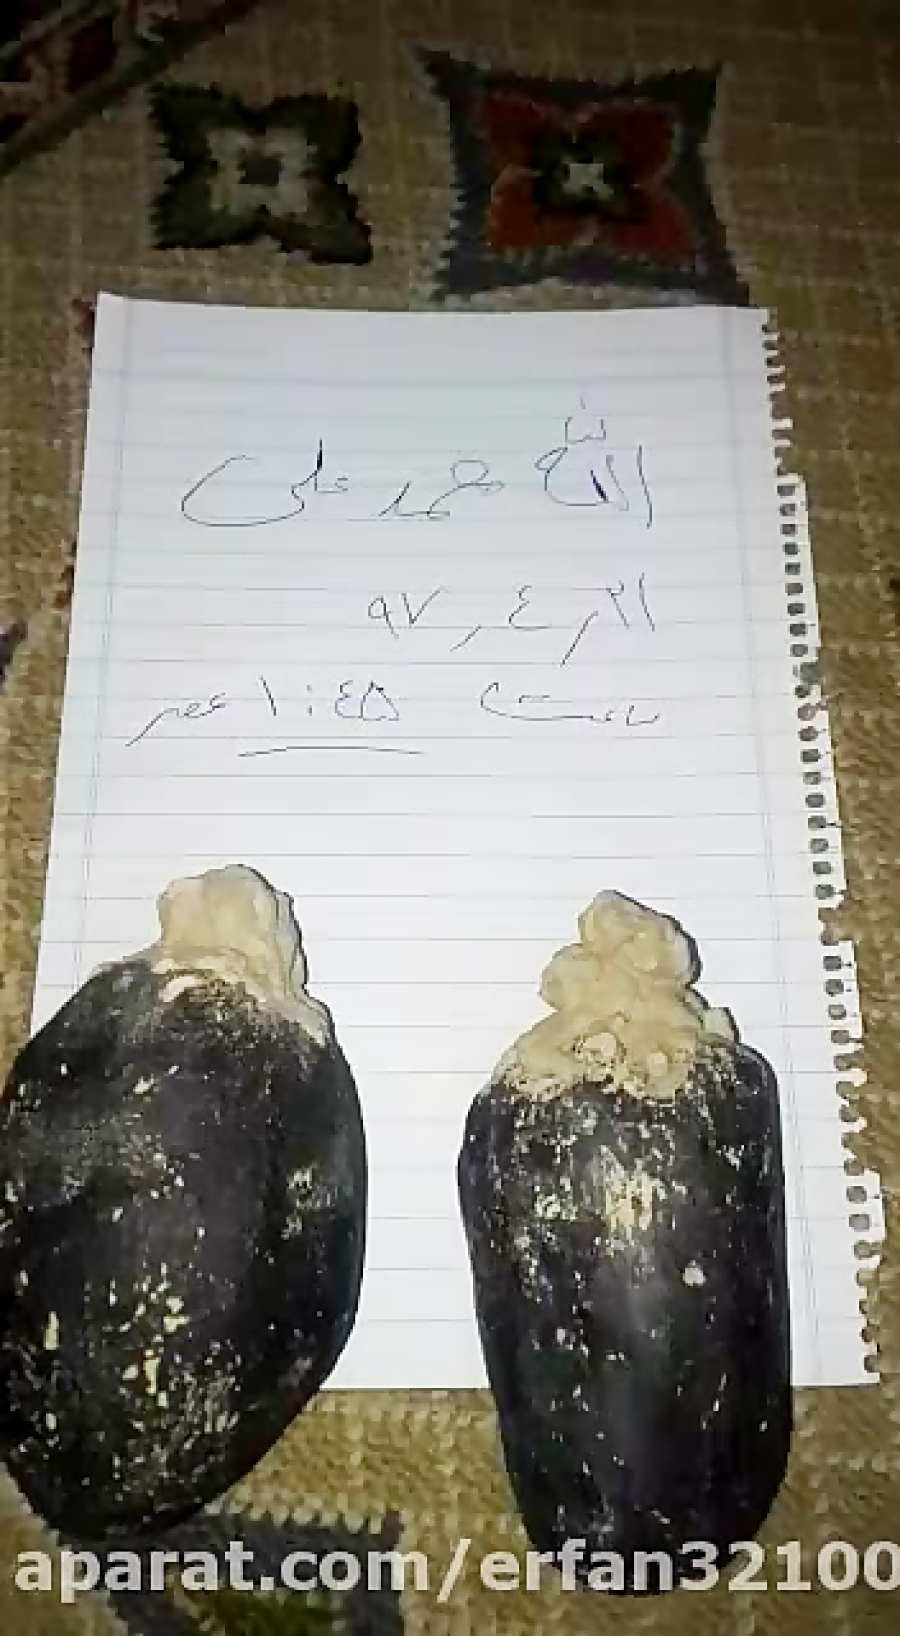 الله محمد علی
۲۱ / ٤ / ۹۷
ساعت ۱:٤۵ عصر
aparat.com/erfan32100